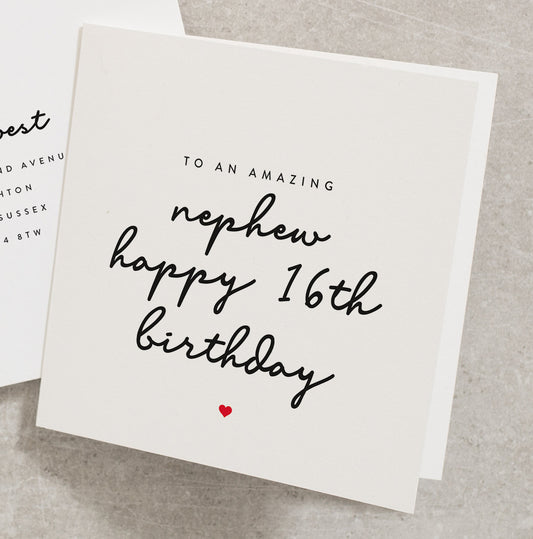 est
ND AVENU
HTON
SUSSEX
4 8TW
TO AN AMAZING
nephew
happy 16th
birthday